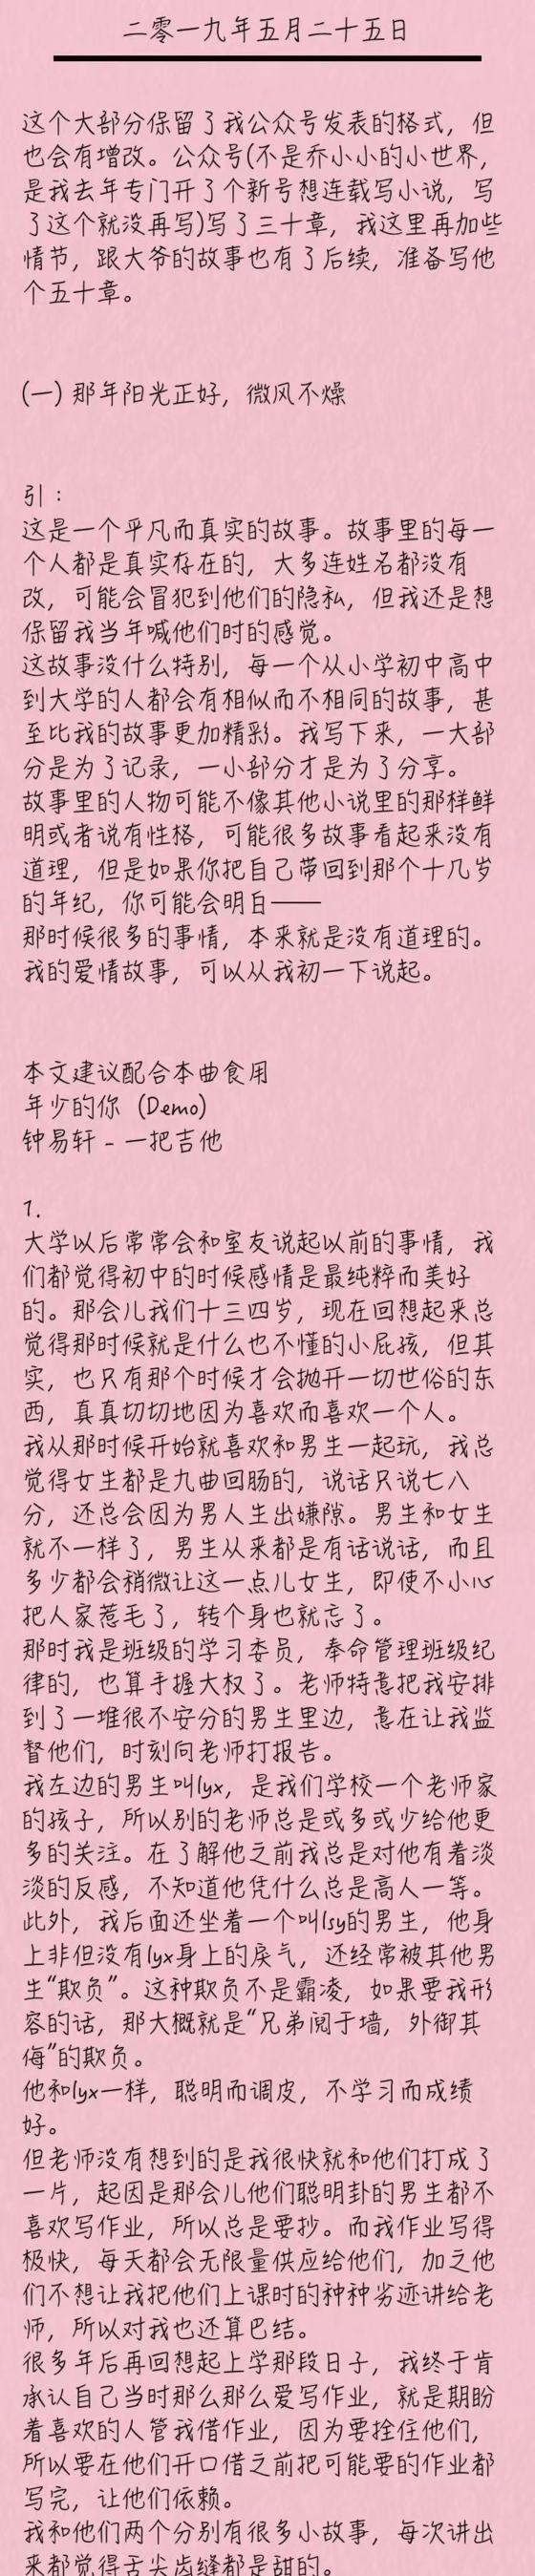 二零一九年五月二十五日
这个大部分保留了我公众号发表的格式，但
也会有增改。公众号(不是乔小小的小世界，
是我去年专门开了个新号想连载写小说，写
了这个就没再写)写了三十章，我这里再加些
情节，跟大爷的故事也有了后续，准备写他
个五十章。
(一) 那年阳光正好，微风不燥
引：
这是一个平凡而真实的故事。故事里的每一
个人都是真实存在的，大多连姓名都没有
改，可能会冒犯到他们的隐私，但我还是想
保留我当年喊他们时的感觉。
这故事没什么特别，每一个从小学初中高中
到大学的人都会有相似而不相同的故事，甚
至比我的故事更加精彩。我写下来，一大部
分是为了记录，一小部分才是为了分享。
故事里的人物可能不像其他小说里的那样鲜
明或者说有性格，可能很多故事看起来没有
道理，但是如果你把自己带回到那个十几岁
的年纪，你可能会明白——
那时候很多的事情，本来就是没有道理的。
我的爱情故事，可以从我初一下说起。
本文建议配合本曲食用
年少的你（Demo）
钟易轩 - 一把吉他
1.
大学以后常常会和室友说起以前的事情，我
们都觉得初中的时候感情是最纯粹而美好
的。那会儿我们十三四岁，现在回想起来总
觉得那时候就是什么也不懂的小屁孩，但其
实，也只有那个时候才会抛开一切世俗的东
西，真真切切地因为喜欢而喜欢一个人。
我从那时候开始就喜欢和男生一起玩，我总
觉得女生都是九曲回肠的，说话只说七八
分，还总会因为男人生出嫌隙。男生和女生
就不一样了，男生从来都是有话说话，而且
多少都会稍微让这一点儿女生，即使不小心
把人家惹毛了，转个身也就忘了。
那时我是班级的学习委员，奉命管理班级纪
律的，也算手握大权了。老师特意把我安排
到了一堆很不安分的男生里边，意在让我监
督他们，时刻向老师打报告。
我左边的男生叫lyx，是我们学校一个老师家
的孩子，所以别的老师总是或多或少给他更
多的关注。在了解他之前我总是对他有着淡
淡的反感，不知道他凭什么总是高人一等。
此外，我后面还坐着一个叫lsy的男生，他身
上非但没有lyx身上的戾气，还经常被其他男
生“欺负”。这种欺负不是霸凌，如果要我形
容的话，那大概就是“兄弟阋于墙，外御其
侮”的欺负。
他和lyx一样，聪明而调皮，不学习而成绩
好。
但老师没有想到的是我很快就和他们打成了
一片，起因是那会儿他们聪明卦的男生都不
喜欢写作业，所以总是要抄。而我作业写得
极快，每天都会无限量供应给他们，加之他
们不想让我把他们上课时的种种劣迹讲给老
师，所以对我也还算巴结。
很多年后再回想起上学那段日子，我终于肯
承认自己当时那么那么爱写作业，就是期盼
着喜欢的人管我借作业，因为要拴住他们，
所以要在他们开口借之前把可能要的作业都
写完，让他们依赖。
我和他们两个分别有很多小故事，每次讲出
来都觉得舌尖齿缝都是甜的。